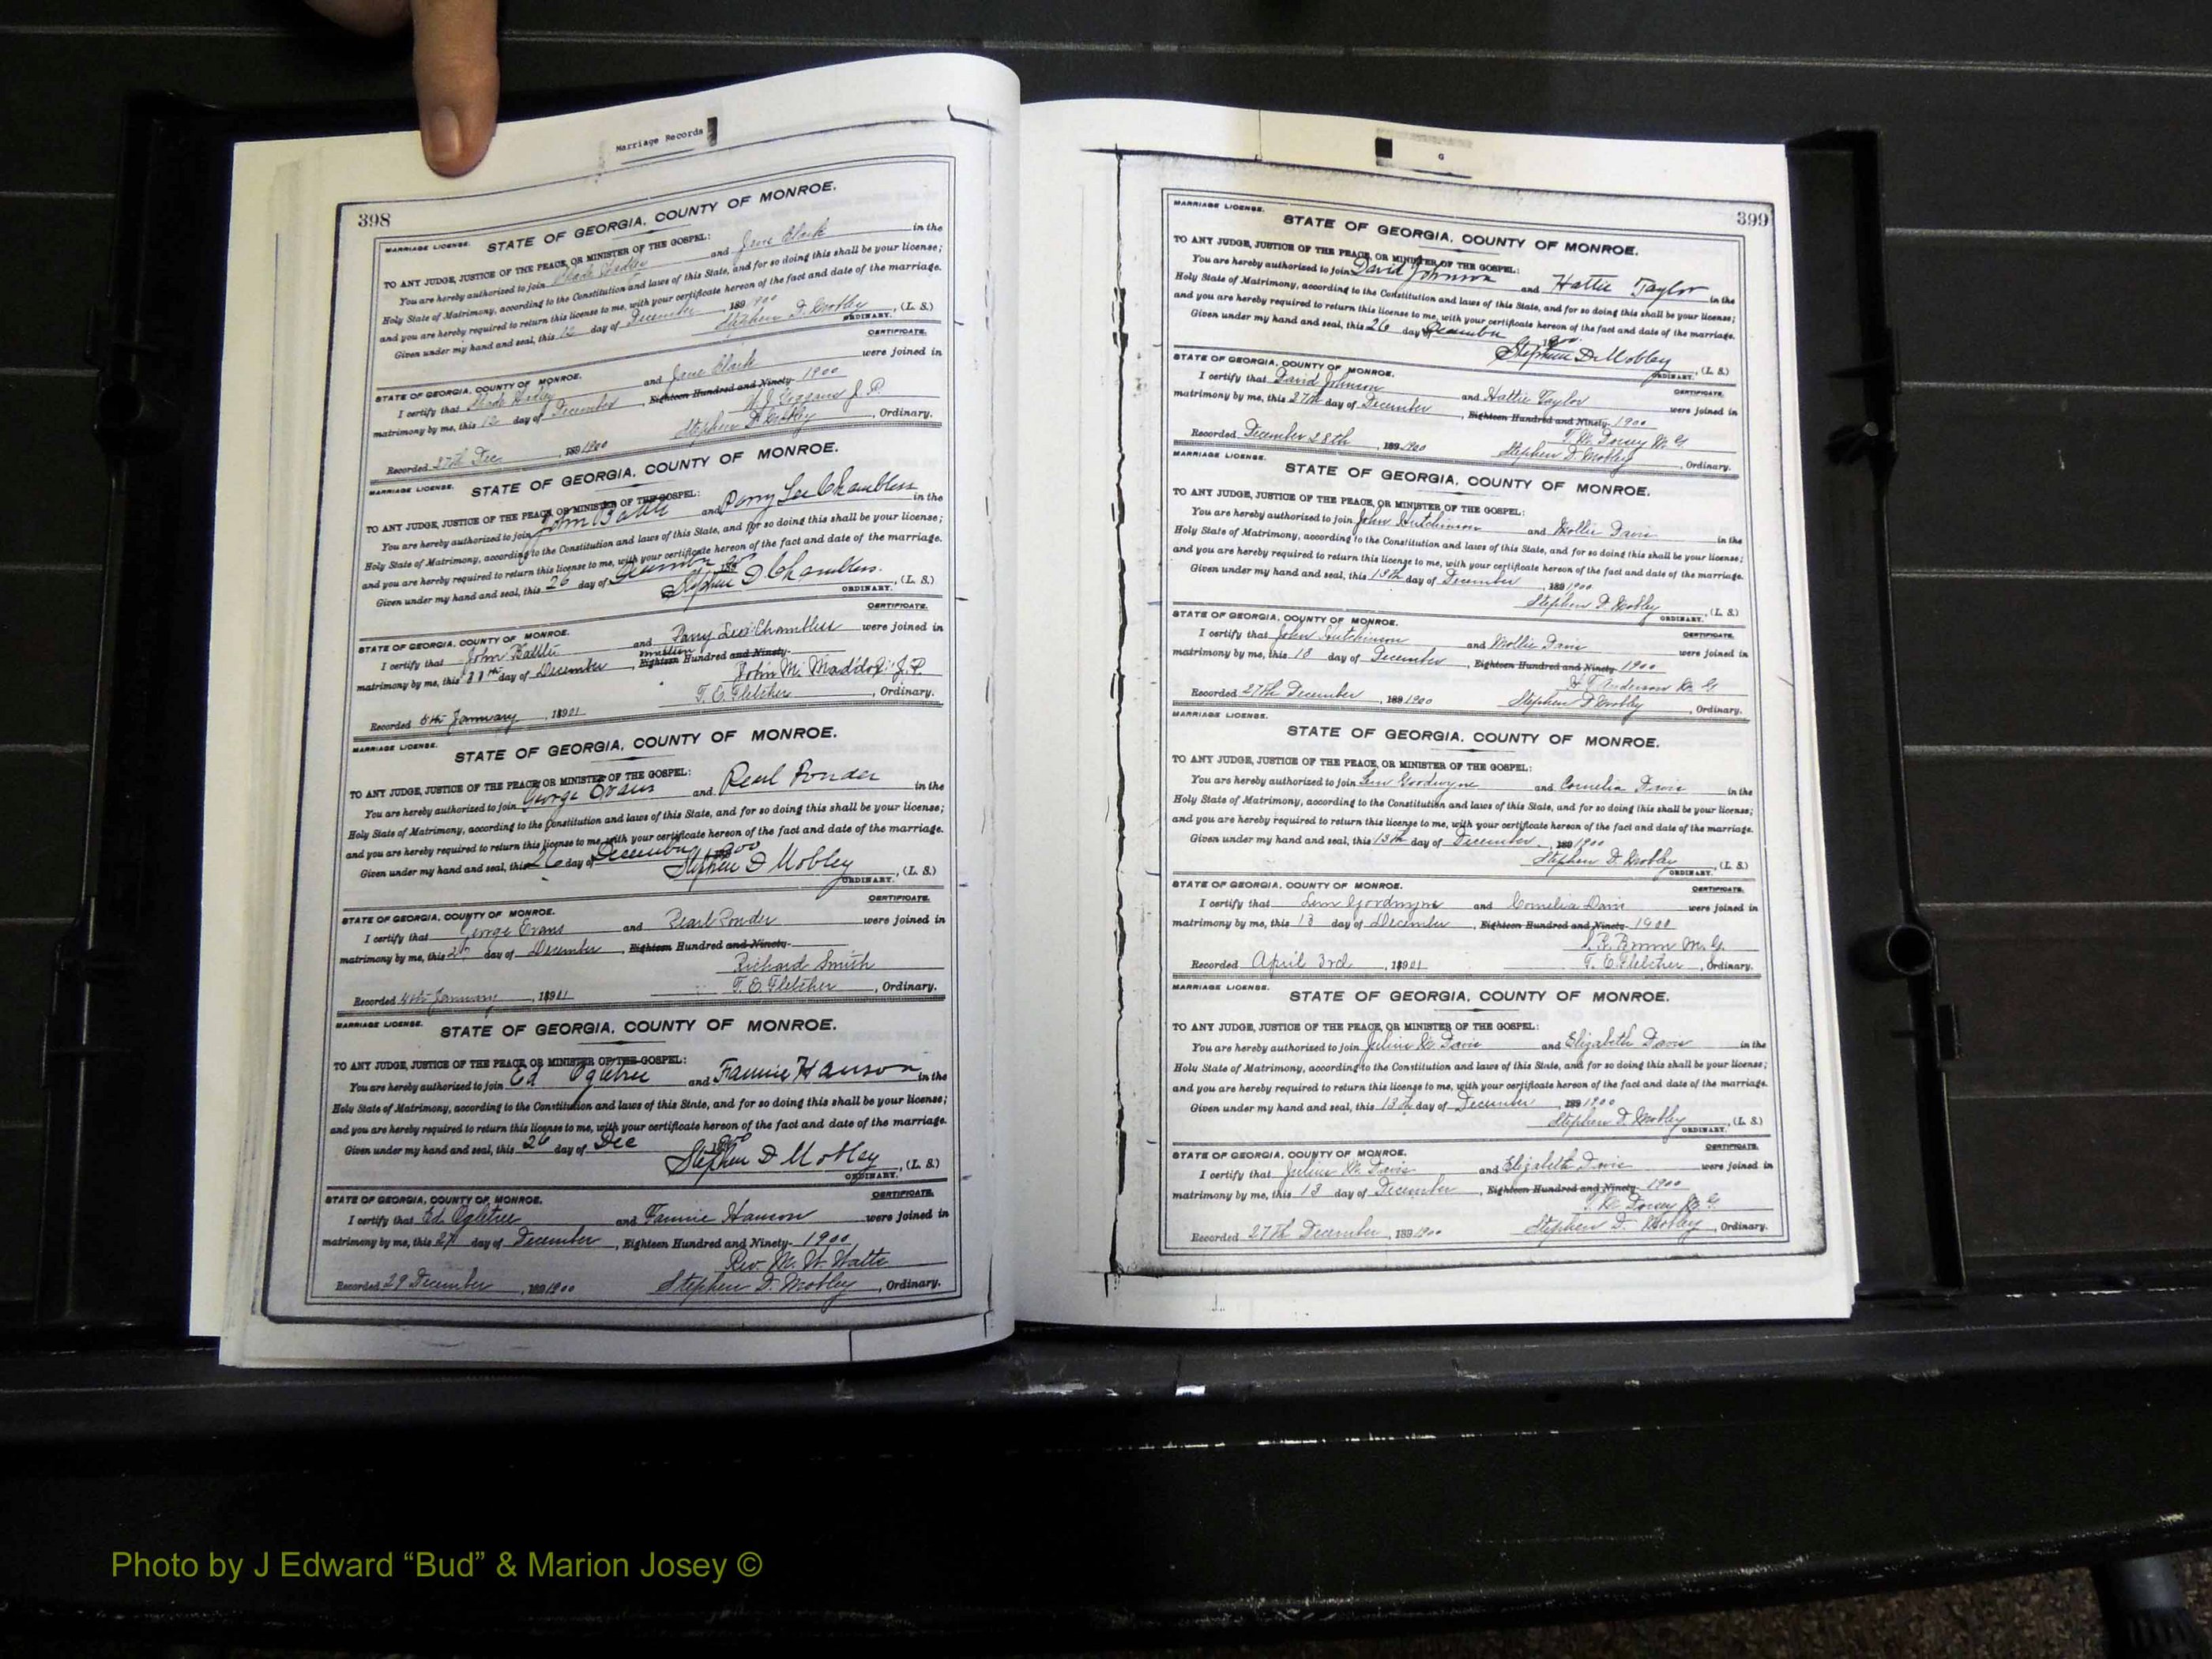 Marriage Records
398
MARRIAGE LICENSE.
STATE OF GEORGIA, COUNTY OF MONROE.
TO ANY JUDGE, JUSTICE OF THE PEACE, OR MINISTER OF THE GOSPEL:
You are hereby authorized to join and Jane Clark in the
Holy State of Matrimony, according to the Constitution and laws of this State, and for so doing this shall be your license;
and you are hereby required to return this license to me, with your certificate hereon of the fact and date of the marriage.
Given under my hand and seal, this 12 day of December, 189 1900
Stephen D. Mobley, (L. S.)
ORDINARY.
CERTIFICATE.
STATE OF GEORGIA, COUNTY OF MONROE.
I certify that and Jane Clark were joined in
matrimony by me, this 12 day of December, Eighteen Hundred and Ninety- 1900
J. P.
Recorded 27th Dec, 189 1900 Stephen D. Mobley, Ordinary.
MARRIAGE LICENSE.
STATE OF GEORGIA, COUNTY OF MONROE.
TO ANY JUDGE, JUSTICE OF THE PEACE, OR MINISTER OF THE GOSPEL:
You are hereby authorized to join John Battle and Parry Lee Chambless in the
Holy State of Matrimony, according to the Constitution and laws of this State, and for so doing this shall be your license;
and you are hereby required to return this license to me, with your certificate hereon of the fact and date of the marriage.
Given under my hand and seal, this 26 day of December 189
Stephen D Chambless, (L. S.)
ORDINARY.
CERTIFICATE.
STATE OF GEORGIA, COUNTY OF MONROE.
I certify that John Battle and Parry Lee Chambless were joined in
matrimony by me, this day of December, Eighteen Hundred and Ninety-
John M. Maddox J. P.
Recorded 5th January, 18901 T. E. Fletcher, Ordinary.
MARRIAGE LICENSE.
STATE OF GEORGIA, COUNTY OF MONROE.
TO ANY JUDGE, JUSTICE OF THE PEACE, OR MINISTER OF THE GOSPEL:
You are hereby authorized to join George Evans and Pearl Ponder in the
Holy State of Matrimony, according to the Constitution and laws of this State, and for so doing this shall be your license;
and you are hereby required to return this license to me, with your certificate hereon of the fact and date of the marriage.
Given under my hand and seal, this 26 day of December 1900
Stephen D Mobley, (L. S.)
ORDINARY.
CERTIFICATE.
STATE OF GEORGIA, COUNTY OF MONROE.
I certify that George Evans and Pearl Ponder were joined in
matrimony by me, this day of December, Eighteen Hundred and Ninety-
Richard Smith
Recorded 4th January, 18901 T. E. Fletcher, Ordinary.
MARRIAGE LICENSE.
STATE OF GEORGIA, COUNTY OF MONROE.
TO ANY JUDGE, JUSTICE OF THE PEACE, OR MINISTER OF THE GOSPEL:
You are hereby authorized to join Ed Ogletree and Fannie Hanson in the
Holy State of Matrimony, according to the Constitution and laws of this State, and for so doing this shall be your license;
and you are hereby required to return this license to me, with your certificate hereon of the fact and date of the marriage.
Given under my hand and seal, this 26 day of Dec 1900
Stephen D Mobley, (L. S.)
ORDINARY.
CERTIFICATE.
STATE OF GEORGIA, COUNTY OF MONROE.
I certify that Ed Ogletree and Fannie Hanson were joined in
matrimony by me, this 27 day of December, Eighteen Hundred and Ninety- 1900
Rev. M. W. Watts
Recorded 29 December, 189 1900 Stephen D. Mobley, Ordinary.
399
MARRIAGE LICENSE.
STATE OF GEORGIA, COUNTY OF MONROE.
TO ANY JUDGE, JUSTICE OF THE PEACE, OR MINISTER OF THE GOSPEL:
You are hereby authorized to join David Johnson and Hattie Taylor in the
Holy State of Matrimony, according to the Constitution and laws of this State, and for so doing this shall be your license;
and you are hereby required to return this license to me, with your certificate hereon of the fact and date of the marriage.
Given under my hand and seal, this 26 day of December 1900
Stephen D Mobley, (L. S.)
ORDINARY.
CERTIFICATE.
STATE OF GEORGIA, COUNTY OF MONROE.
I certify that David Johnson and Hattie Taylor were joined in
matrimony by me, this 27th day of December, Eighteen Hundred and Ninety- 1900
Dorsey M. G.
Recorded December 28th, 189 1900 Stephen D. Mobley, Ordinary.
MARRIAGE LICENSE.
STATE OF GEORGIA, COUNTY OF MONROE.
TO ANY JUDGE, JUSTICE OF THE PEACE, OR MINISTER OF THE GOSPEL:
You are hereby authorized to join John Hutchinson and Mollie Davis in the
Holy State of Matrimony, according to the Constitution and laws of this State, and for so doing this shall be your license;
and you are hereby required to return this license to me, with your certificate hereon of the fact and date of the marriage.
Given under my hand and seal, this 13th day of December, 189 1900
Stephen D. Mobley, (L. S.)
ORDINARY.
CERTIFICATE.
STATE OF GEORGIA, COUNTY OF MONROE.
I certify that John Hutchinson and Mollie Davis were joined in
matrimony by me, this day of December, Eighteen Hundred and Ninety- 1900
Anderson M. G.
Recorded 27th December, 189 1900 Stephen D. Mobley, Ordinary.
MARRIAGE LICENSE.
STATE OF GEORGIA, COUNTY OF MONROE.
TO ANY JUDGE, JUSTICE OF THE PEACE, OR MINISTER OF THE GOSPEL:
You are hereby authorized to join Goodwyne and Cornelia Davis in the
Holy State of Matrimony, according to the Constitution and laws of this State, and for so doing this shall be your license;
and you are hereby required to return this license to me, with your certificate hereon of the fact and date of the marriage.
Given under my hand and seal, this 13th day of December, 189 1900
Stephen D. Mobley, (L. S.)
ORDINARY.
CERTIFICATE.
STATE OF GEORGIA, COUNTY OF MONROE.
I certify that Goodwyne and Cornelia Davis were joined in
matrimony by me, this 13 day of December, Eighteen Hundred and Ninety- 1900
Brown M. G.
Recorded April 3rd, 18901 T. E. Fletcher, Ordinary.
MARRIAGE LICENSE.
STATE OF GEORGIA, COUNTY OF MONROE.
TO ANY JUDGE, JUSTICE OF THE PEACE, OR MINISTER OF THE GOSPEL:
You are hereby authorized to join Julius Davis and Elizabeth Davis in the
Holy State of Matrimony, according to the Constitution and laws of this State, and for so doing this shall be your license;
and you are hereby required to return this license to me, with your certificate hereon of the fact and date of the marriage.
Given under my hand and seal, this 13th day of December, 189 1900
Stephen D. Mobley, (L. S.)
ORDINARY.
CERTIFICATE.
STATE OF GEORGIA, COUNTY OF MONROE.
I certify that Julius Davis and Elizabeth Davis were joined in
matrimony by me, this 13 day of December, Eighteen Hundred and Ninety- 1900
Dorsey M. G.
Recorded 27th December, 189 1900 Stephen D. Mobley, Ordinary.
Photo by J Edward “Bud” & Marion Josey ©